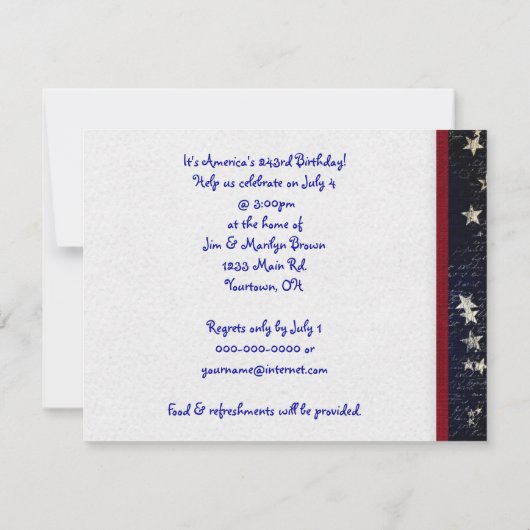 It's America's 243rd Birthday!
Help us celebrate on July 4
@ 3:00pm
at the home of
Jim & Marilyn Brown
1233 Main Rd.
Yourtown, OH
Regrets only by July 1
000-000-0000 or
yourname@internet.com
Food & refreshments will be provided.